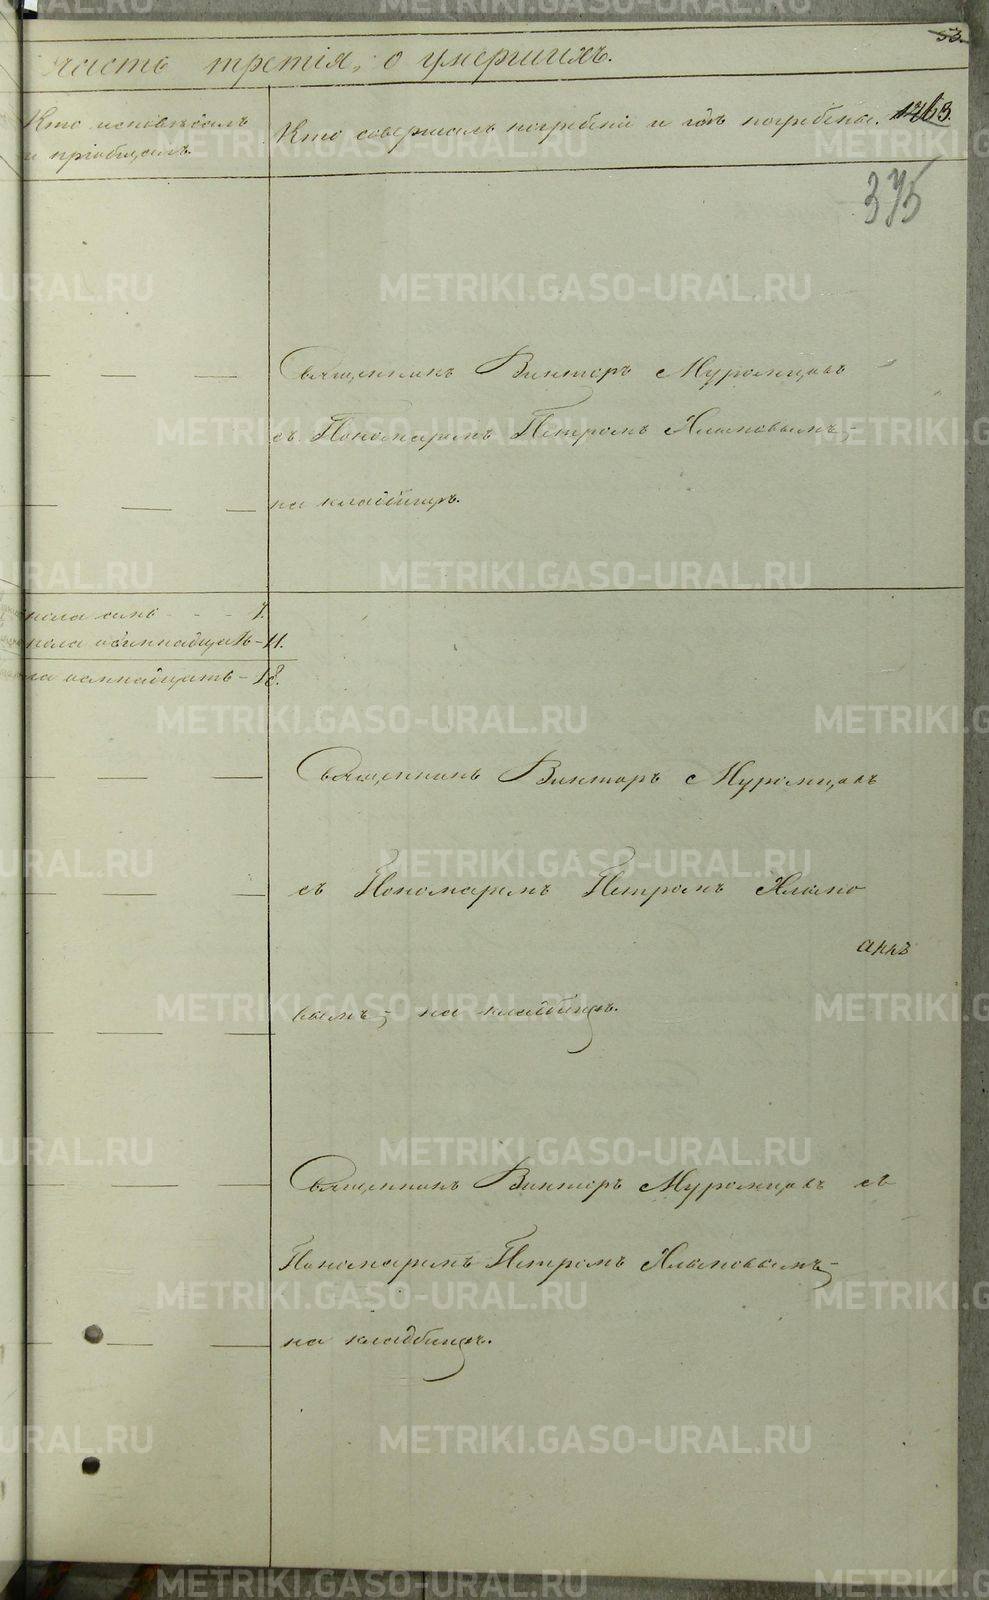 53.
часть третія, о умершихъ.
Кто исповѣдалъ
и пріобщалъ.
Кто совершалъ погребеніе и гдѣ погребены.
1263.
375
Священникъ Викторъ Муромцовъ
съ Пономаремъ Петромъ Хлыновымъ,
на кладбищѣ.
пола семь - - - 7.
пола одиннадцать - 11.
осмнадцать - 18.
Священникъ Викторъ Муромцовъ
съ Пономаремъ Петромъ Хлыно
вымъ, на кладбищѣ.
Священникъ Викторъ Муромцовъ съ
Пономаремъ Петромъ Хлыновымъ,
на кладбищѣ.
METRIKI.GASO-URAL.RU